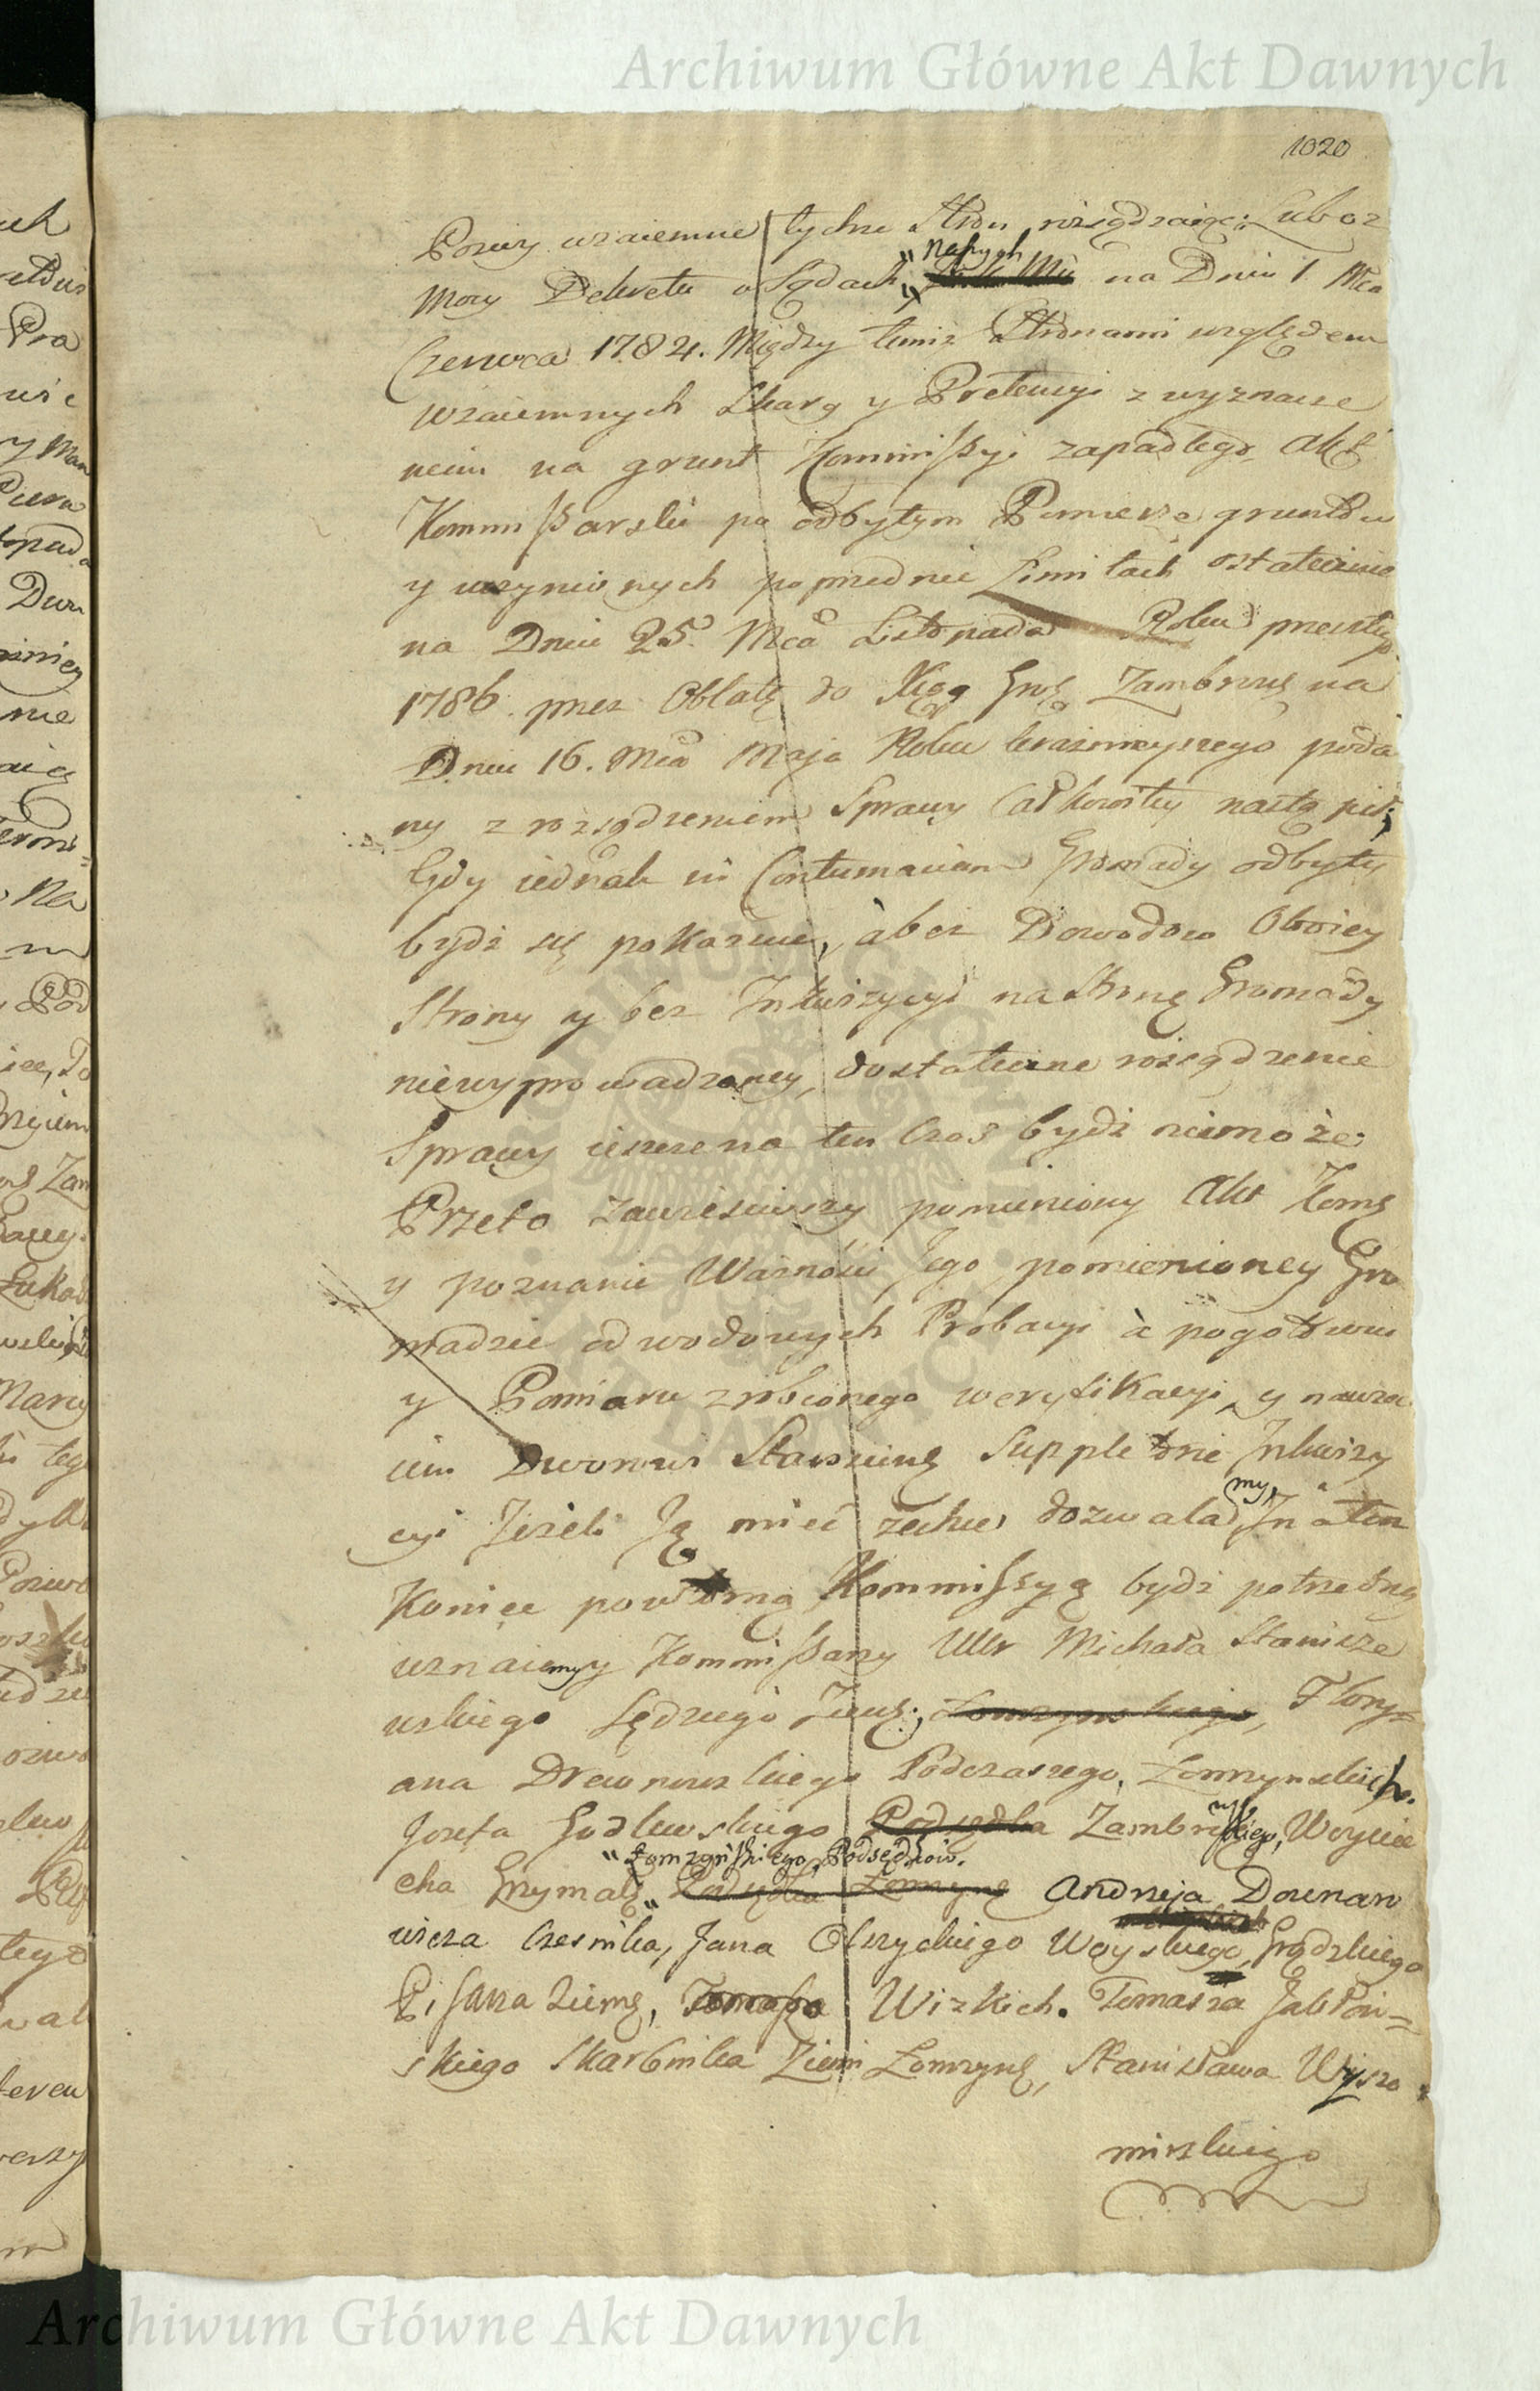 Archiwum Główne Akt Dawnych
1020
Pozwy wzaiemne tychże Stron rozsądzaiąc; Lubo z
Naszych
mocy Dekretu w Sądach na Dniu 1. Mca
Czerwca 1784. Między temiż Stronami względem
wzaiemnych Skarg y Pretensyi z wyznacze
niem na grunt Kommissyi zapadłego, Akt
Kommissarski po odbytym Pomierze gruntów
y uczynionych poprzednie Limitach ostatecznie
na Dniu 25. Mca Listopada Roku przeszłego
1786. przez Oblatę do Xiąg Grod. Zambrows. na
Dniu 16. Mca Maja Roku teraznieyszego poda
ny z rozsądzeniem Sprawy całkowitey nastąpił;
Gdy iednak in Contumaciam Gromady odbyty
bydź się pokazuie, a bez Dowodów Oboiey
Strony y bez Inkwizycyi na Stronę Gromady
niewyprowadzoney, dostateczne rozsądzenie
Sprawy ieszcze na ten czas bydź niemoże:
Przeto zawiesiwszy pomieniony Akt Koms
y poznanie Ważności Jego, pomienioney Gro
madzie odwodowych Probacyi a pogotowiu
y Pomiaru zrobionego weryfikacyi, y nawza
iem Dworowi Stawiskiemu Suppletorie Inkwizy
my,
cyi Jeżeli Ją mieć zechce dozwala In a ten
Koniec powtorną Kommissyą bydź potrzebną
uznaiemy y Kommissarzy Ur Michała Stanisze
wskiego Sędziego Ziems; Łomzynskiego, Flory=
ana Drewnowskiego Podczaszego, Łomzynskich.
Jozefa Godlewskiego Podsędka Zambrowskiego, Woycie
"Łomzyńskiego, Podsędków.
cha Grzymałę" Podsędka Łomzyns Andrzeja Downaro
wicza Cześnika, Jana Olszyckiego Woyskiego, Grądzkiego
Pisarza Ziems, Tomasza Wizkich. Tomasza Jabłon=
skiego Skarbnika Ziemi Łomzyns, Stanisława Wyszo
mirskiego
ARCHIWUM GŁÓWNE AKT DAWNYCH
Archiwum Główne Akt Dawnych